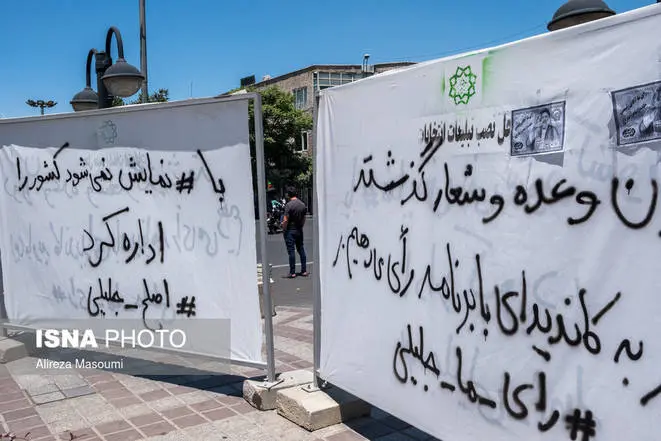 نصب تبلیغات انتخابات
وعده و شعار گذشته
به کاندیدای با برنامه رأی می دهیم
#رای_ما_جلیلی
با #نمایش نمی شود کشور را
اداره کرد
#اصلح_جلیلی
ISNA PHOTO
Alireza Masoumi
ISNA